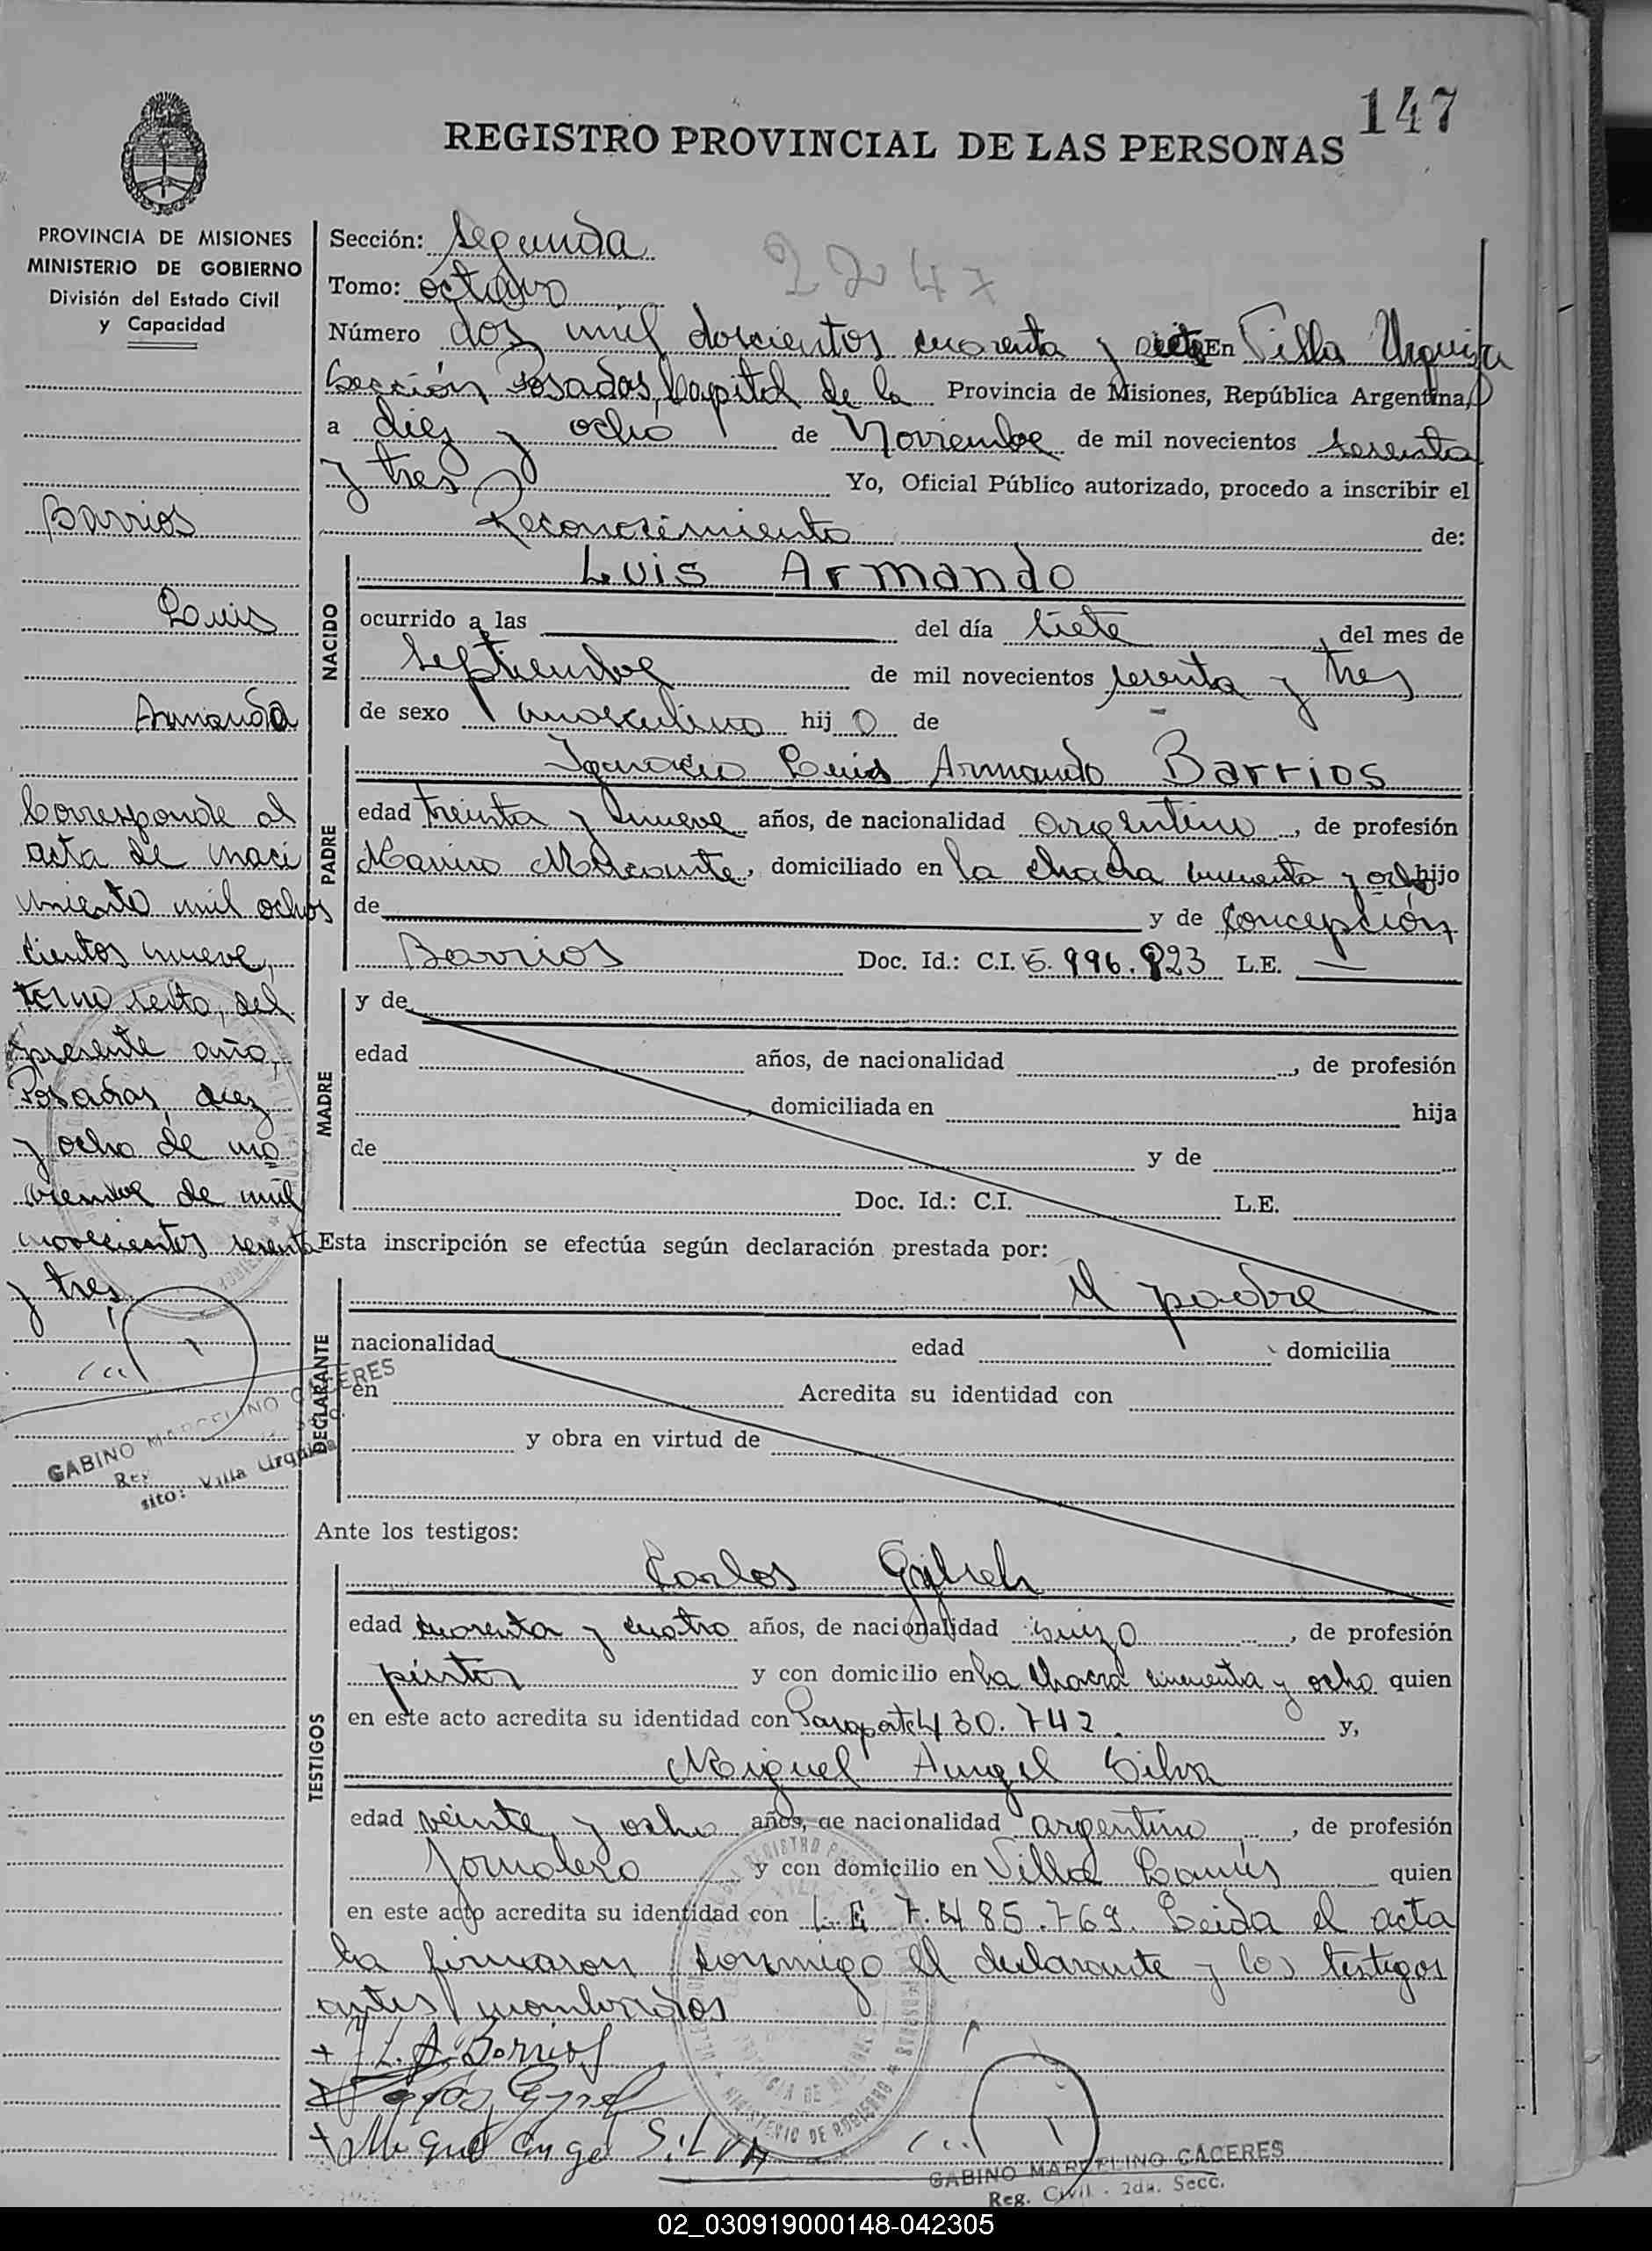 147
REGISTRO PROVINCIAL DE LAS PERSONAS
PROVINCIA DE MISIONES
MINISTERIO DE GOBIERNO
División del Estado Civil
y Capacidad
Barrios
Luis
Armando
Corresponde al
acta de naci
miento mil ochos
cientos nueve,
tomo sexto, del
presente año,
Posadas, diez
y ocho de no
viembre de mil
novecientos sesenta
y tres
GABINO MARCELINO CACERES
sito: Villa Urquiza
Sección: Segunda
2247
Tomo: octavo
Número dos mil doscientos cuarenta y siete En Villa Urquiza
Sección Posadas, Capital de la Provincia de Misiones, República Argentina,
a diez y ocho de Noviembre de mil novecientos sesenta
y tres Yo, Oficial Público autorizado, procedo a inscribir el
Reconocimiento de:
NACIDO
Luis Armando
ocurrido a las del día siete, del mes de
Septiembre de mil novecientos sesenta y tres
de sexo masculino hijo de
PADRE
Ignacio Luis Armando Barrios
edad treinta y nueve años, de nacionalidad argentino, de profesión
Marino Mercante, domiciliado en la chacra cincuenta y ocho hijo
de y de Concepción
Barrios Doc. Id.: C.I. 5.996.823 L.E. —
MADRE
y de
edad años, de nacionalidad , de profesión
, domiciliada en hija
de y de
Doc. Id.: C.I. L.E.
Esta inscripción se efectúa según declaración prestada por:
DECLARANTE
el padre
nacionalidad edad domicilia
en Acredita su identidad con
y obra en virtud de
Ante los testigos:
TESTIGOS
Carlos
edad cuarenta y cuatro años, de nacionalidad suizo, de profesión
pintor y con domicilio en la chacra cincuenta y ocho quien
en este acto acredita su identidad con Pasaporte 430.742 y,
Miguel Angel Silva
edad veinte y ocho años, de nacionalidad argentino, de profesión
Jornalero y con domicilio en Villa Lanús quien
en este acto acredita su identidad con L.E 7.485.769. Leida el acta
la firmaron conmigo el declarante y los testigos
antes nombrados
+ I.L.A. Barrios
+ Miguel Angel SiLVA
GABINO MARCELINO CACERES
Reg. Civil - 2da. Secc.
02_030919000148-042305